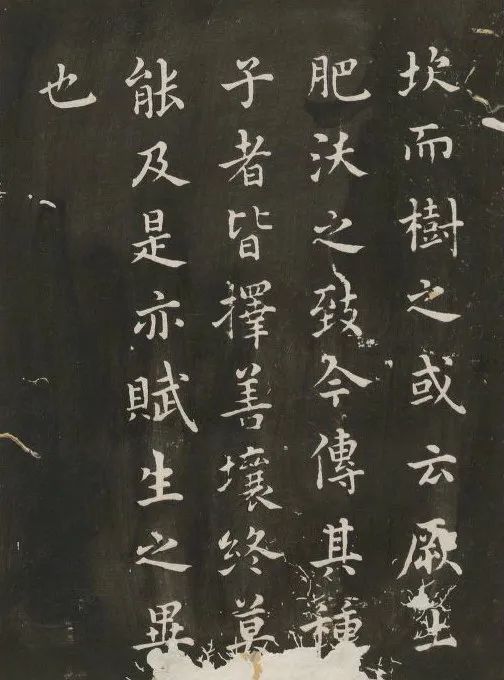 坎而樹之或云厥土
肥沃之致今傳其種
子者皆擇善壤終莫
能及是亦賦生之異
也